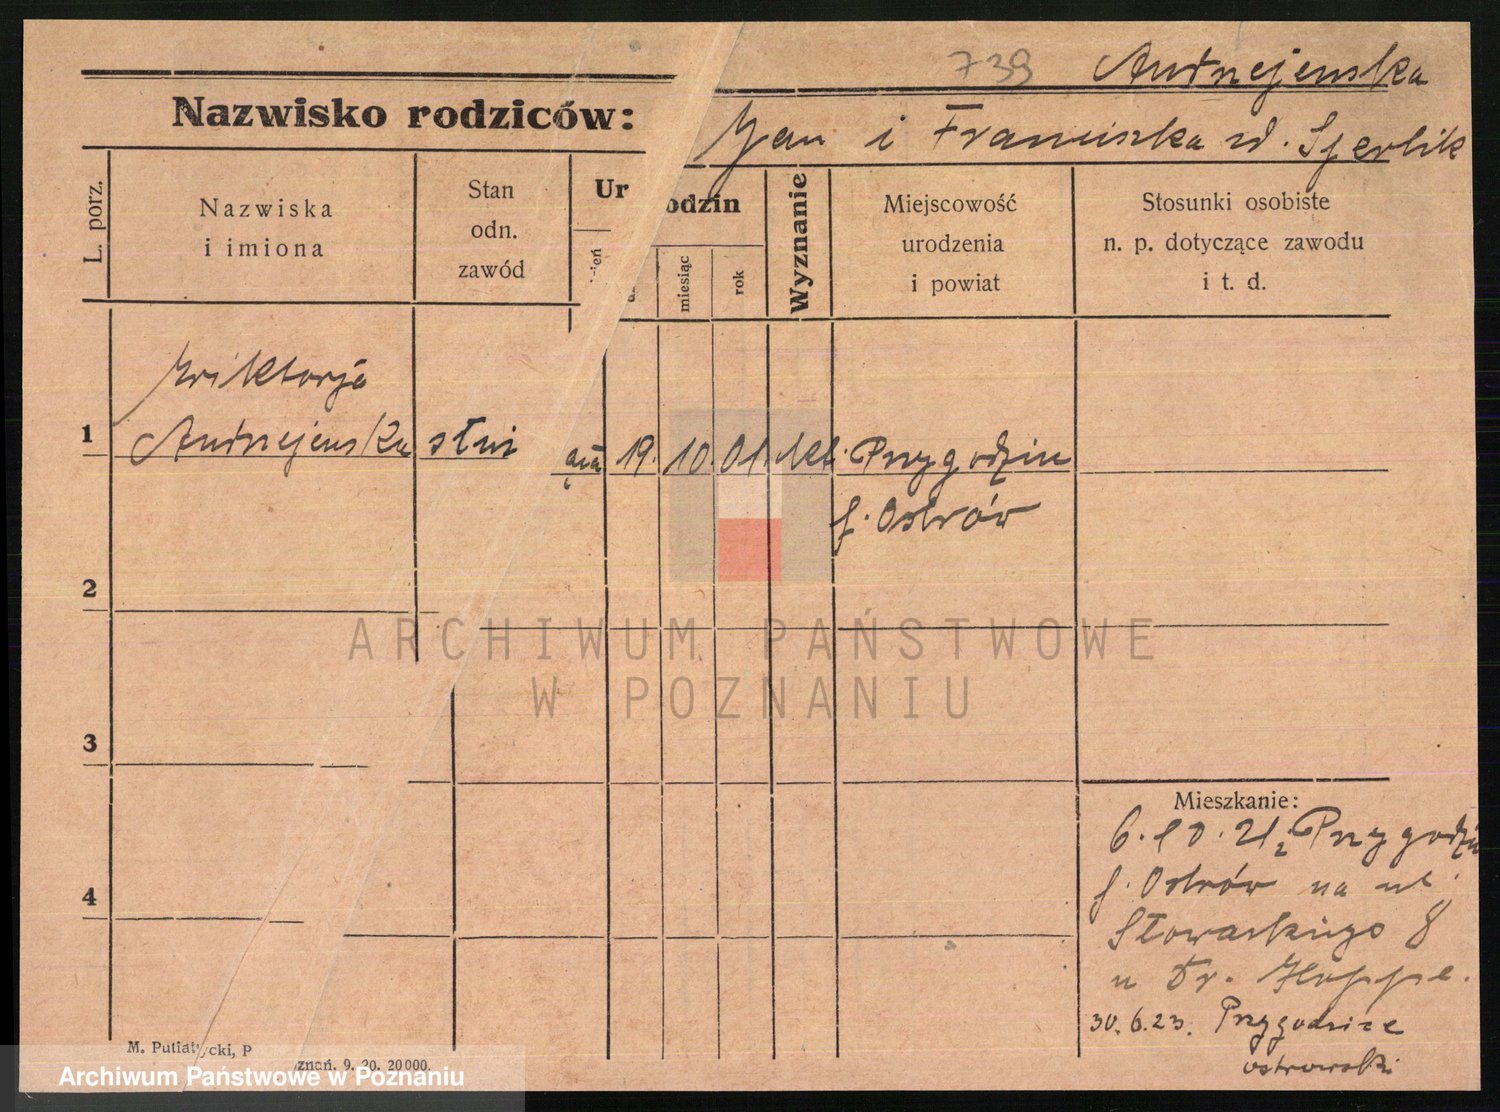 739 Andrzejewska
Nazwisko rodziców: Jan i Franciszka zd. Szperlik
L. porz.
Nazwiska
i imiona
Stan
odn.
zawód
Ur odzin
dzień
miesiąc
rok
Wyznanie
Miejscowość
urodzenia
i powiat
Stosunki osobiste
n. p. dotyczące zawodu
i t. d.
Wiktorja
1 Andrzejewska służąca 19. 10. 01. kt. Przygodzice
p. Ostrów
2
3
4
Mieszkanie:
6.10.21 z Przygodzic
p. Ostrów na ul.
Słowackiego 8
u Dr. Hoppe.
30.6.23. Przygodzice
ostrowski
M. Putiatycki, P znań. 9. 20. 20000.
ARCHIWUM PAŃSTWOWE
W POZNANIU
Archiwum Państwowe w Poznaniu